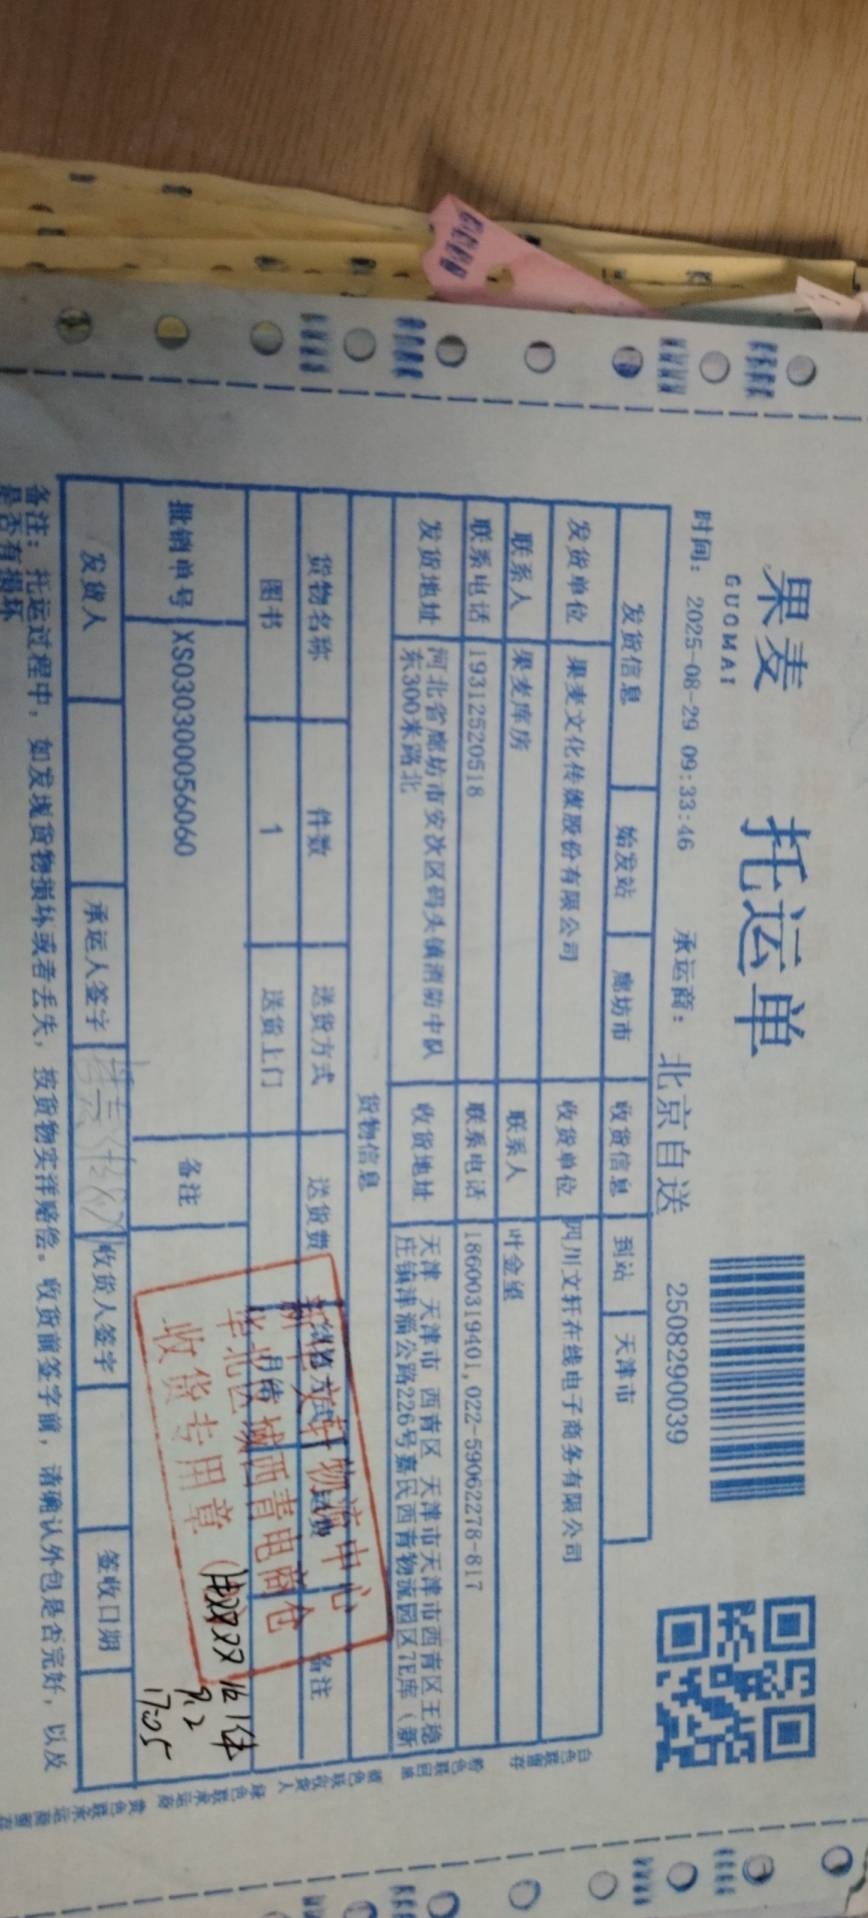 果麦
GUOMAI
托运单
时间： 2025-08-29 09:33:46 承运商： 北京自送 2508290039
发货信息 始发站 廊坊市 收货信息 到站 天津市
发货单位 果麦文化传媒股份有限公司 收货单位 四川文轩在线电子商务有限公司
联系人 果麦库房 联系人 叶金望
联系电话 19312520518 联系电话 18600319401,022-59062278-817
发货地址 河北省廊坊市安次区码头镇消防中队
东300米路北
收货地址 天津 天津市 西青区 天津市天津市西青区王稳
庄镇津淄公路226号嘉民西青物流园区7E库（新
货物信息
货物名称 件数 送货方式 送货费 备注
图书 1 送货上门 月结
批销单号 XS030300056060 备注
新华文轩物流中心
华北区域西青电商仓
收货专用章
收1件
9.2
17:05
发货人 承运人签字 收货人签字 签收日期
备注：托运过程中，如发现货物损坏或者丢失，按货物实洋赔偿。收货前签字前，请确认外包是否完好，以及
是否有损坏
白色联留存
粉色联回单
绿色联承运商
黄色联承运商留存